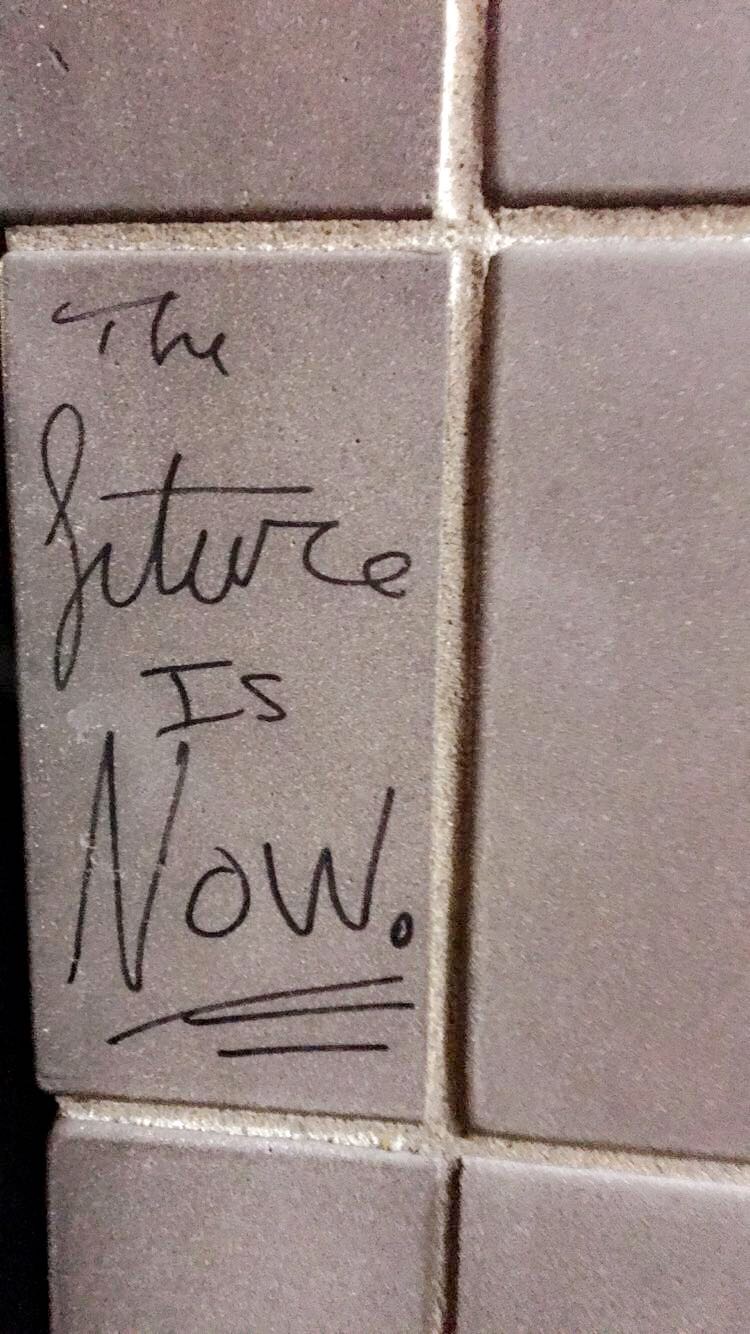 The
future
Is
Now.